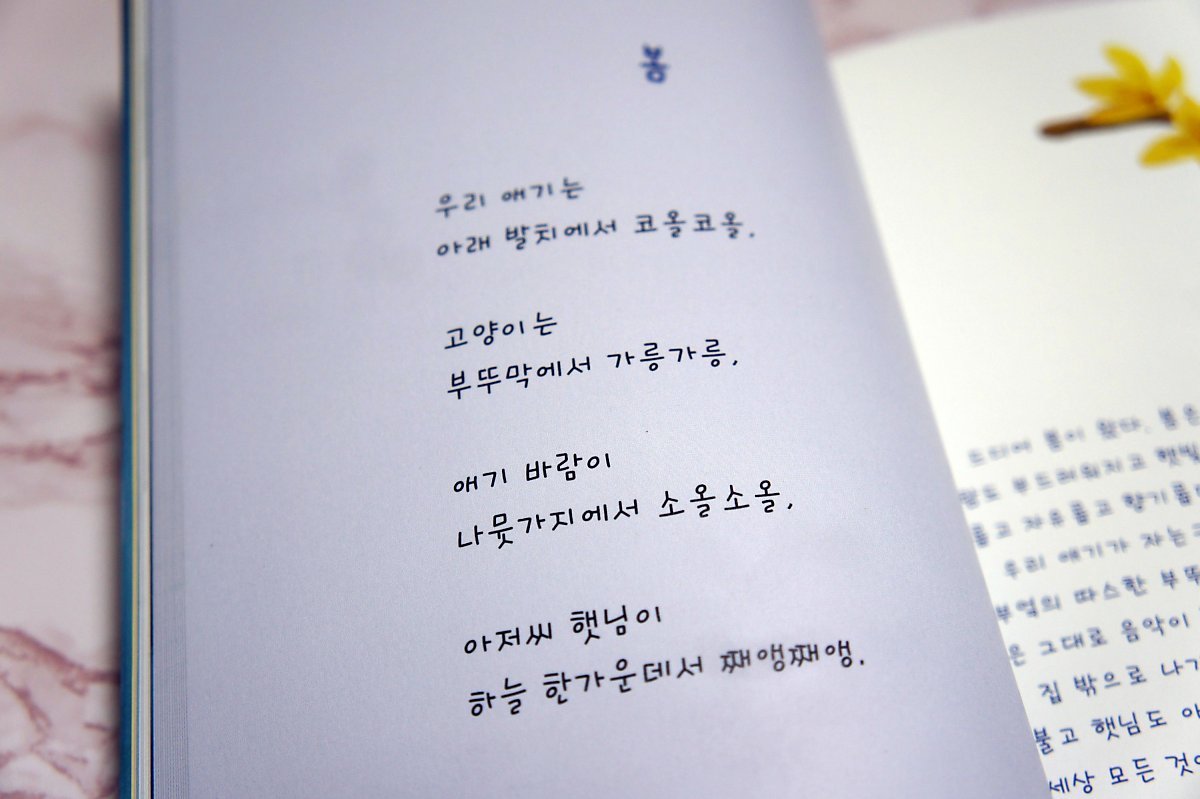 봄
우리 애기는
아래 발치에서 코올코올,
고양이는
부뚜막에서 가릉가릉,
애기 바람이
나뭇가지에서 소올소올,
아저씨 햇님이
하늘 한가운데서 째앵째앵.
드디어 봄이 왔다. 봄은
부드러워지고
우리 애기가 자는
부엌의 따스한
은 그대로 음악이
집 밖으로 나가
불고 햇님도
세상 모든